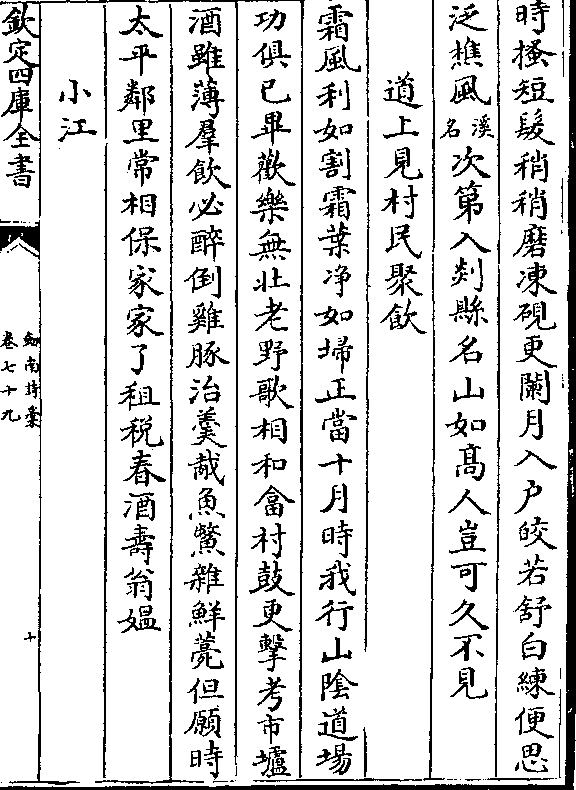 時搔短髮稍稍磨凍硯更闌月入戶皎若舒白練便思
泛樵風溪名次第入剡縣名山如高人豈可久不見
道上見村民聚飲
霜風利如割霜葉淨如埽正當十月時我行山陰道場
功俱已畢歡樂無壯老野歌相和畣村鼓更擊考市壚
酒雖薄羣飲必醉倒雞豚治羹胾魚鱉雜鮮薧但願時
太平鄰里常相保家家了租税春酒壽翁媪
小江
欽定四庫全書
劔南詩稾
卷七十九
十